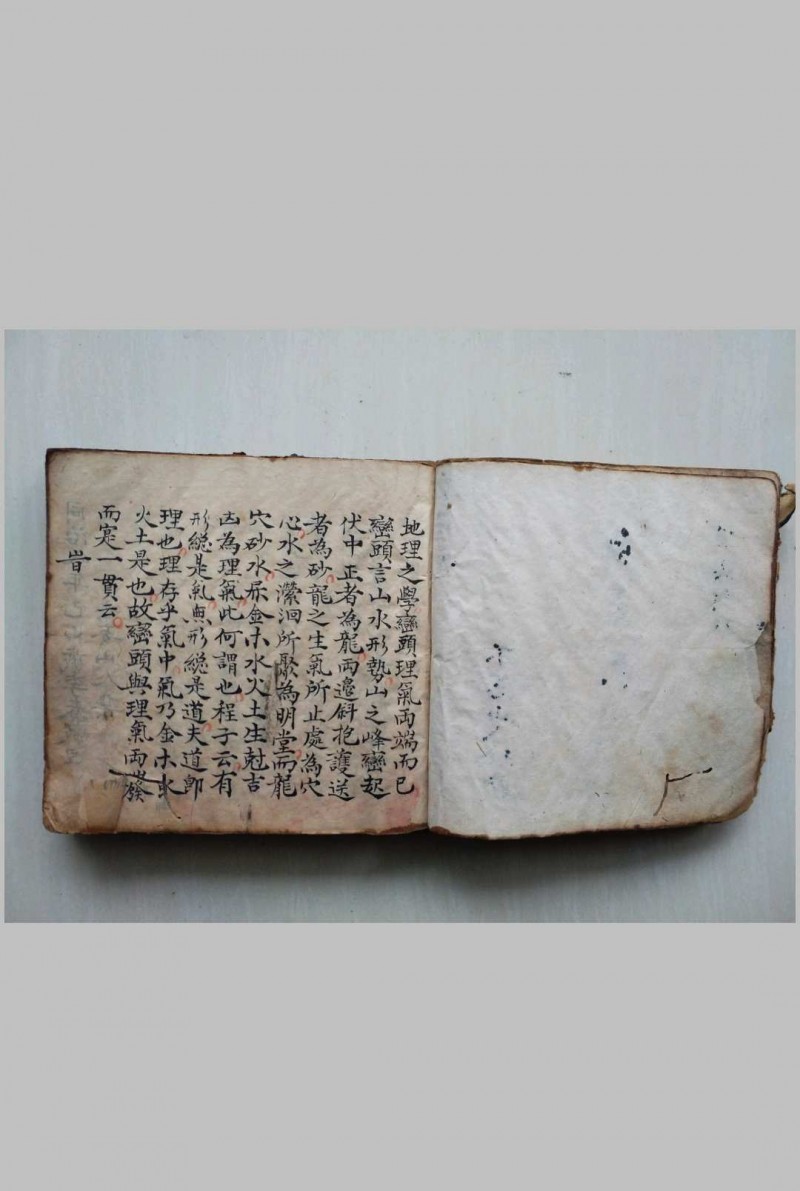 地理之學巒頭理氣兩端而已
巒頭言山水形勢山之峰巒起
伏中正者為龍兩邉斜抱護送
者為砂龍之生氣所止處為穴
心水之瀠洄所聚為明堂而龍
穴砂水尿金木水火土生尅吉
凶為理氣此何謂也程子云有
形總是氣無形總是道夫道即
理也理存乎氣中氣乃金木水
火土是也故巒頭與理氣兩發
而寔一貫云
旹